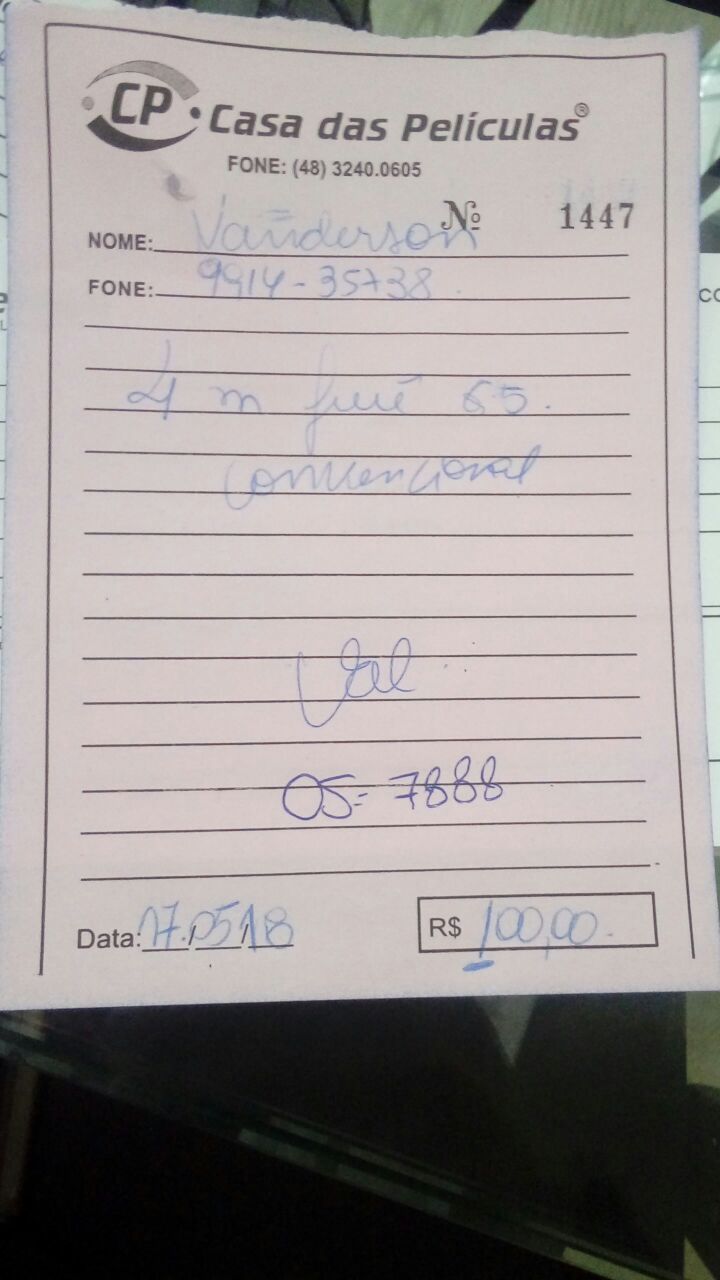 CP • Casa das Películas®
FONE: (48) 3240.0605
Nº 1447
NOME: Vanderson
FONE: 9914-35738
4 m
convencional
Val
05= 7888
Data: 17.05/18
R$ 100,00